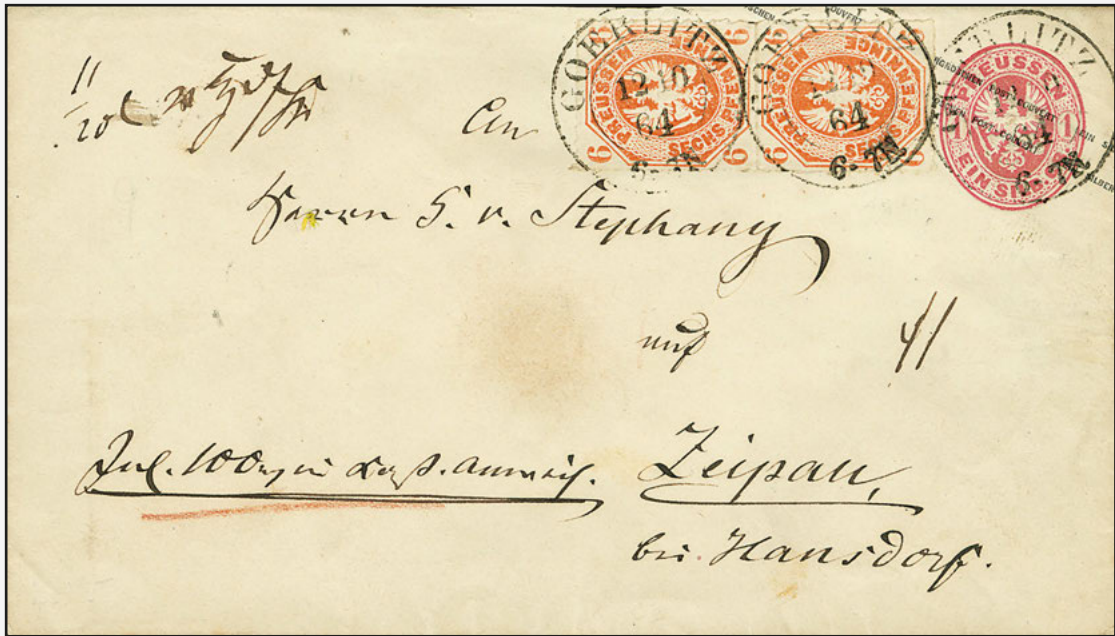 GOERLITZ
12 10
64
6-7N
PREUSSEN
SECHS PFENNINGE
6 6 6 6
GOERLITZ
12 10
64
6-7N
PREUSSEN
SECHS PFENNINGE
6 6 6 6
GOERLITZ
64
6-7N
PREUSSEN
1 1
EIN SILB. GR.
11
10
An
Herrn S. v. Stephany
auf
Zeipau,
bei Hansdorf.
Inl. 100